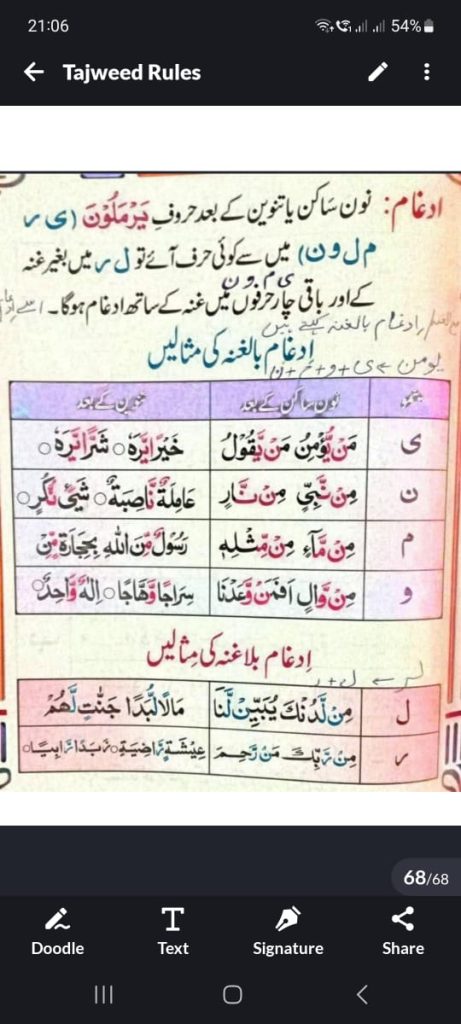 21:06
54%
Tajweed Rules
ادغام: نون ساکن یا تنوین کے بعد حروفِ یَرْمَلُوْنَ (ی ر
م ل و ن) میں سے کوئی حرف آئے تو ل ر میں بغیر غنہ
ی م و ن
کے اور باقی چار حرفوں میں غنہ کے ساتھ ادغام ہوگا۔ اسے
ادغام بالغنہ کہتے ہیں
ادغام بالغنہ کی مثالیں
یومن ← ی + و + م + ن
نون ساکن کے بعد تنوین کے بعد
ی مَنْ يُّؤْمِنُ مَنْ يَّقُوْلُ خَيْرًا يَّرَهٗ ○ شَرًّا يَّرَهٗ ○
ن مِنْ نَّبِيٍّ مِنْ نَّارٍ عَامِلَةٌ نَّاصِبَةٌ ○ شَيْءٍ نُّكُرٍ ○
م مِنْ مَّآءٍ مِنْ مِّثْلِهٖ رَسُوْلٌ مِّنَ اللهِ بِحِجَارَةٍ مِّنْ
و مِنْ وَّالٍ اَفَمَنْ وَّعَدْنَا سِرَاجًا وَّهَّاجًا ○ اِلٰهٌ وَّاحِدٌ ○
اِدغام بلاغنہ کی مثالیں
ل مِنْ لَّدُنْكَ يُبَيِّنْ لَّنَا مَالًا لُّبَدًا جَنّٰتٍ لَّهُمْ
ر مِنْ رَّبِّكَ مَنْ رَّحِمَ عِيْشَةٍ رَّاضِيَةٍ ○ زَبَدًا رَّابِيًا ○
68/68
Doodle
Text
Signature
Share